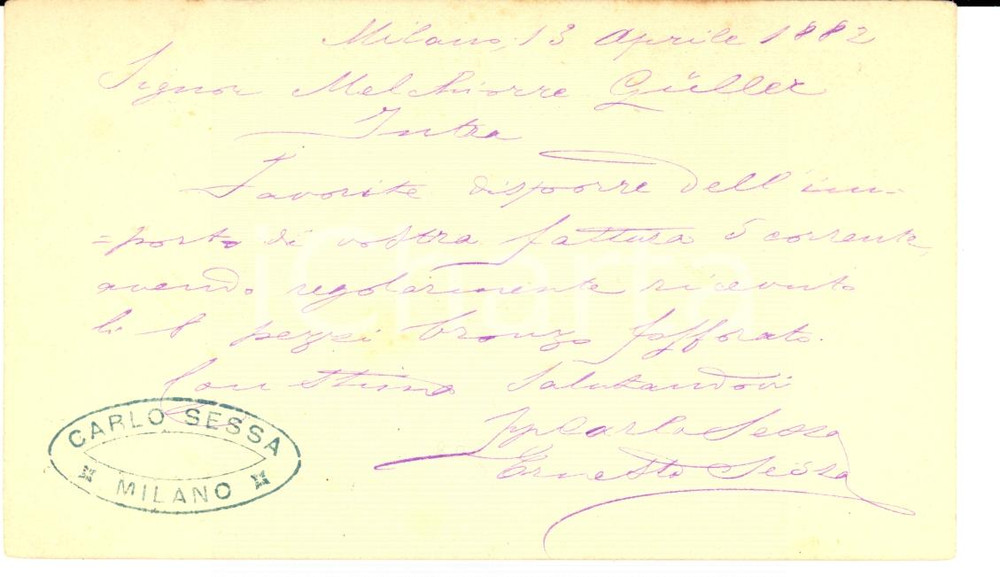 Milano, 13 Aprile 1882
Signor Melchiorre Güller
Intra
Favorite disporre dell'im=
=porto di vostra fattura 5 corrente,
avendo regolarmente ricevuto
li 8 pezzi bronzo fosforato.
Con stima salutandovi
Carlo Sessa
Ernesto Sessa
CARLO SESSA
MILANO
iCharta